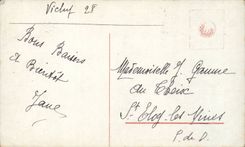 Vichy 28
Bons Baisers
à Bientôt
Jane
Mademoiselle J.
au Choix
St Eloy-les-Mines
P. de D.